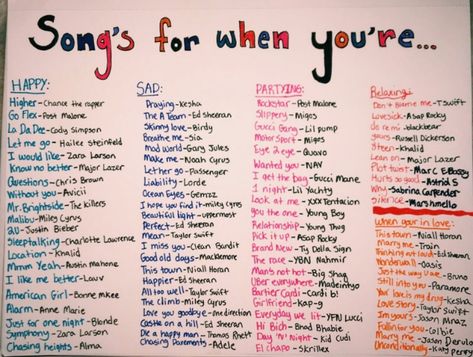 Song's for when you're...
HAPPY:
Higher-Chance the rapper
Go Flex-Post Malone
La Da Dee-Cody Simpson
Let me go-Hailee Steinfeld
I would like-Zara Larson
Know no better-Major Lazer
Questions-Chris Brown
Without you-Avicii
Mr. Brightside-The killers
Malibu-Miley Cyrus
2U-Justin Bieber
Sleeptalking-Charlotte Lawrence
Location-Khalid
Mmm Yeah-Austin Mahone
I like me better-Lauv
American Girl-Bonnie McKee
Alarm-Anne Marie
Just for one night-Blonde
Symphony-Zara Larson
Chasing heights-Alma
SAD:
Praying-Kesha
The A Team-Ed Sheeran
Skinny love-Birdy
Breathe me-Sia
Mad World-Gary Jules
Make me-Noah Cyrus
Let her go-Passenger
Liability-Lorde
Ocean Eyes-
I hope you find it-Miley Cyrus
Beautiful light-uppermost
Perfect-Ed Sheeran
Mean-Taylor Swift
I miss you-Clean Bandit
Good old days-Macklemore
This town-Niall Horan
Happier-Ed Sheeran
All too well-Taylor Swift
The climb-Miley Cyrus
Love you goodbye-One direction
Castle on a hill-Ed Sheeran
Die a happy man-Thomas Rhett
Chasing Pavements-Adele
PARTYING:
Rockstar-Post Malone
Slippery-Migos
Gucci Gang-Lil pump
Motor Sport-Migos
Eye 2 eye-Quavo
Wanted you-NAV
I get the bag-Gucci Mane
1 night-Lil Yachty
Look at me-XXXTentacion
You the one-Young Boy
Relationship-Young Thug
Pick it up-Asap Rocky
Brand New-Ty Dolla Sign
The race-YBN Nahmir
Mans not hot-Big Shaq
Uber everywhere-Madeintyo
Bartier Cardi-Cardi b
Girlfriend-Kap-g
Everyday we lit-YFN Lucci
Hi Bich-Bhad Bhabie
Day 'N' Night-Kid Cudi
El chapo-Skrillex
Relaxing:
Don't Blame me-T Swift
Lovesick-Asap Rocky
do re mi-blackbear
yours-Russell Dickerson
8teen-Khalid
Lean on-Major Lazer
Plot twist-Marc E Bassy
Hurts so good-Astrid S
Why-Sabrina Carpenter
Silence-Marshmello
When your in love:
This town-Niall Horan
Marry me-Train
Thinking out loud-Ed Sheeran
Wonderwall-Oasis
Just the way U are-Bruno
Still into you-Paramore
Your love is my drug-Kesha
Love story-Taylor Swift
Im yours-Jason Mraz
Fallin for you-Colbie
Marry me-Jason Derulo
Unconditionally-Katy Perry